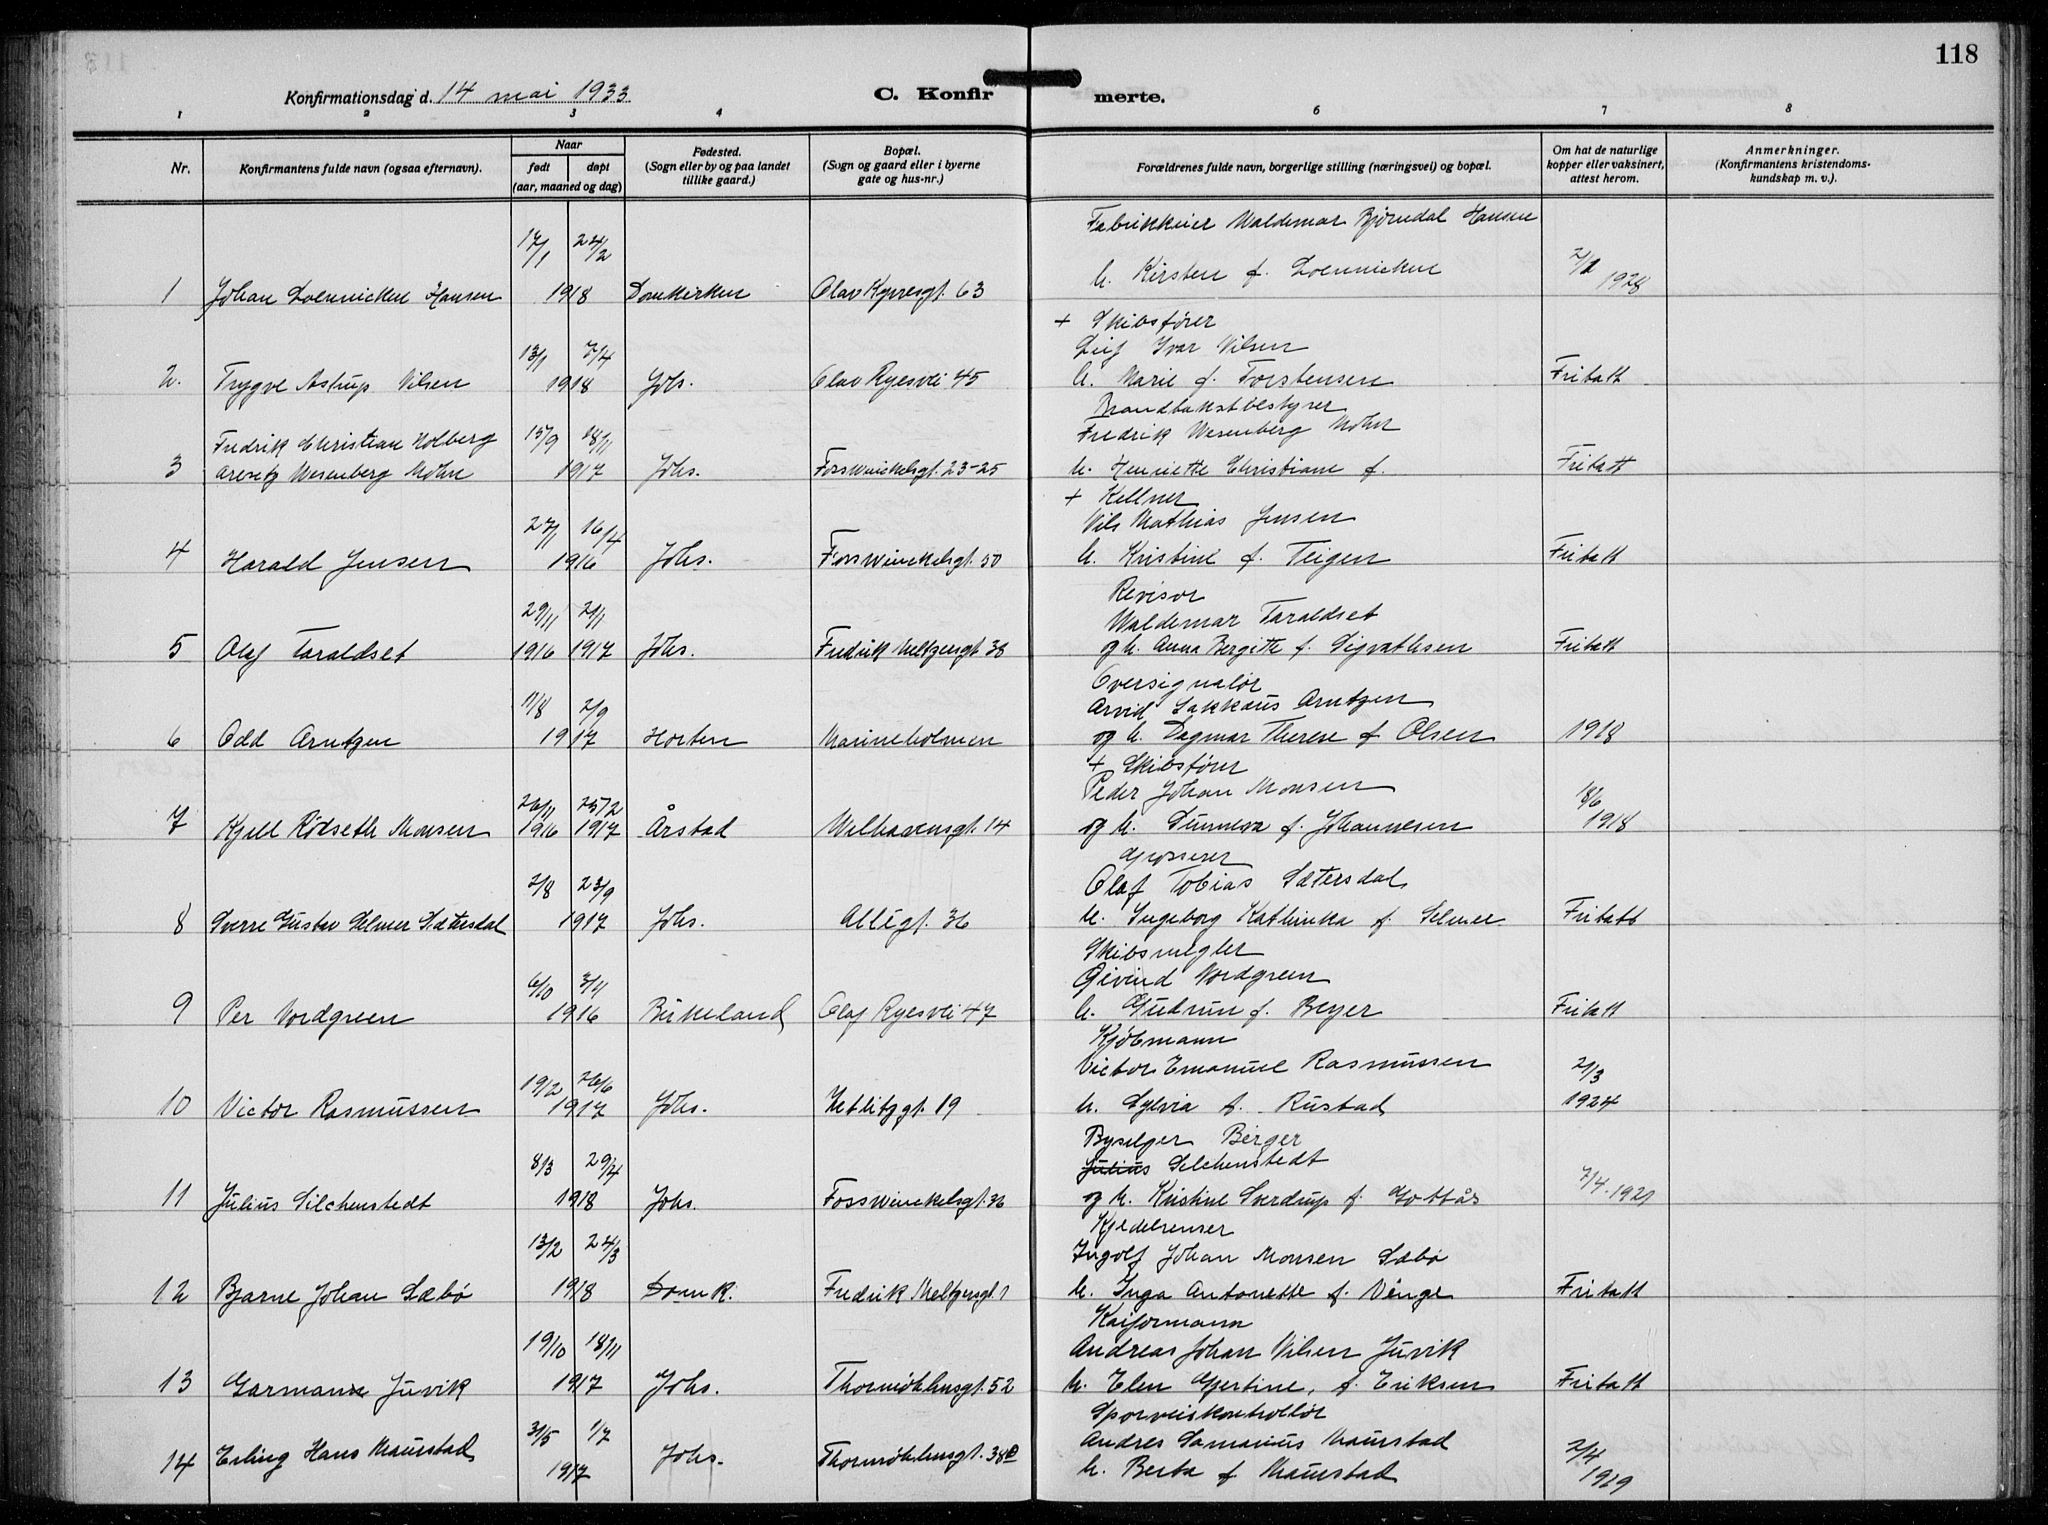 118
Konfirmationsdag d. 14 mai 1933
C. Konfirmerte.
1 2 3 4 6 7 8
Nr.
Konfirmantens fulde navn (ogsaa efternavn).
Naar
født døpt
(aar, maaned og dag)
Fødested.
(Sogn eller by og paa landet
tillike gaard.)
Bopæl.
(Sogn og gaard eller i byerne
gate og hus-nr.)
Forældrenes fulde navn, borgerlige stilling (næringsvei) og bopæl.
Om hat de naturlige
kopper eller vaksinert,
attest herom.
Anmerkninger.
(Konfirmantens kristendoms-
kundskap m. v.).
Fabrikkeier Waldemar Bjørndal Hansen
17/1 24/2
h. Kirsten f. Loennicken
1 Johan Loennicken Hansen 1918 Domkirken Olav Kyrresgt. 63 1928
+ Skibsfører
Leif Ivar Nilsen
13/1 7/4
2. Trygve Astrup Nilsen 1918 Johs. Olav Ryesvei 45 h. Marie f. Torstensen Fritatt
Fredrik Wesenberg Mohn
Fredrik Christian Holberg 15/9 18/11
3 Wesenberg Mohn 1917 Johs. Fosswinckelsgt. 23-25 h. Henriette Christiane f. Fritatt
+ Kellner
Nils Mathias Jensen
27/1 16/4
4 Harald Jensen 1916 Johs. Fosswinckelsgt. 50 h. Kristine f. Teigen Fritatt
Revisor
29/11 21/1 Waldemar Taraldset
5 Olaf Taraldset 1916 1917 Johs. Fredrik Meltzersgt. 38 og h. Anna Bergitte f. Sigvathsen Fritatt
Oversignalør
11/8 2/9 Arvid Sakkæus Arntzen
6 Odd Arntzen 1917 Horten Marineholmen og h. Dagmar Therese f Olsen 1918
+ Skibsfører
Peder Johan Monsen
26/11 25/2 18/6
7 Kjell Rødseth Monsen 1916 1917 Årstad Welhavensgt. 14 og h. Sunneva f. Johannesen 1918
Grosserer
2/8 23/9 Olaf Tobias Sætersdal
8 Sverre Gustav Selmer Sætersdal 1917 Johs. Allégt. 36 h. Ingeborg Kathinka f. Selmer Fritatt
Skibsmegler
6/10 3/11 Øivind Nordgreen
9 Per Nordgreen 1916 Birkeland Olaf Ryesvei 47 h. Gudrun f. Beyer Fritatt
Kjøbmann
Victor Emanuel Rasmussen
19/2 26/6 2/3
10 Victor Rasmussen 1917 Johs. Netlitzgt. 19 h. Sylvia f. Rustad 1924
Byselger Berger
8/3 29/4 Julius Silchenstedt
11 Julius Silchenstedt 1918 Johs. Fosswinckelsgt. 36 og h. Kristine Sverdrup f. Gottås 7/4. 1921
Kjedelrenser
13/2 24/3 Ingolf Johan Monsen Sæbø
12 Bjarne Johan Sæbø 1918 Domk. Fredrik Meltzersgt. 1 h. Inga Antonette f. Venge Fritatt
Kaiformann
19/10 18/11 Andreas Johan Nilsen Juvik
13 Garmann Juvik 1917 Johs. Thormøhlensgt. 52 h. Elen Gjertine, f. Eriksen Fritatt
Sporveiskontrollør
31/5 1/7 Andres Samanius Maurstad 2/4
14 Erling Hans Maurstad 1917 Johs. Thormøhlensgt. 38 h. Berta f Maurstad 1929